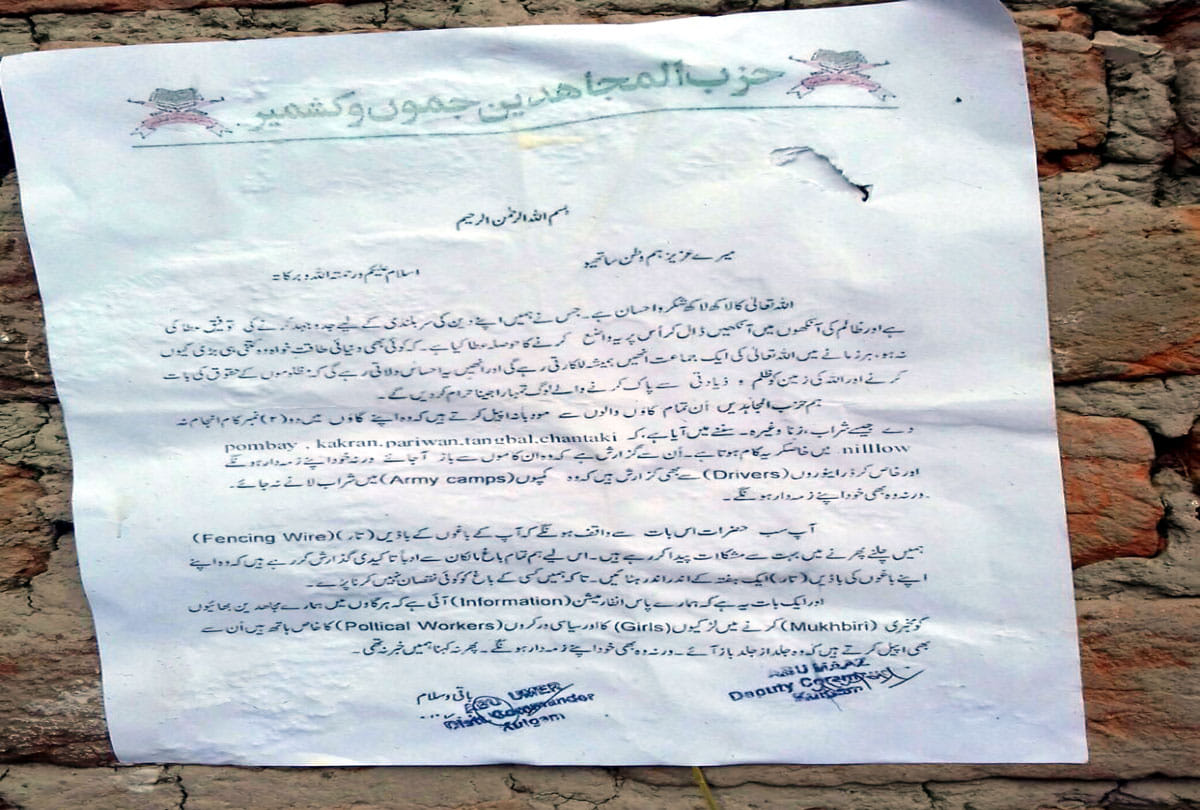 حزب المجاہدین جموں و کشمیر
بسم اللہ الرحمٰن الرحیم
میرے عزیز ہم وطن ساتھیو
اسلام علیکم ورحمتہ اللہ وبرکاتہ
اللہ تعالیٰ کا لاکھ لاکھ شکر و احسان ہے۔ جس نے ہمیں اپنے دین کی سربلندی کے لیے جدوجہد کرنے کی توفیق عطا کی
ہے اور ظالم کی آنکھوں میں آنکھیں ڈال کر اُس پر یہ واضع کرنے کا حوصلہ عطا کیا ہے۔ کہ کوئی بھی دنیائی طاقت خواہ وہ کتنی ہی بڑی کیوں
نہ ہو، ہر زمانے میں اللہ تعالیٰ کی ایک جماعت انھیں ہمیشہ للکارتی رہے گی اور انھیں یہ احساس دلاتی رہے گی کہ مظلوموں کے حقوق کی بات
کرنے اور اللہ کی زمین کو ظلم و ذیادتی سے پاک کرنے والے لوگ تمہارا جینا حرام کر دیں گے۔
ہم حزب المجاہدیں اُن تمام گاوں والوں سے موہ بانہ اپیل کرتے ہیں کہ وہ اپنے گاوں میں دو (۲) نمبر کام انجام نہ
دے جیسے شراب، زنا وغیرہ۔ سننے میں آیا ہے، کہ pombay , kakran,pariwan,tangbal,chantaki
nilllow میں خاسکر یہ کام ہوتا ہے۔ اُن سے گزارش ہے کہ وہ ان کاموں سے باز آجائے ورنہ خود اپنے زمہ دار ہونگے
اور خاص کر ڈرایئوروں (Drivers) سے بھی گزارش ہیں کہ وہ کمپوں (Army camps) میں شراب لانے نہ جائے۔
۔ورنہ وہ بھی خود اپنے زمہ دار ہونگے۔
آپ سب حضرات اس بات سے واقف ہونگے کہ آپ کے باغوں کے باڈیں (تار) (Fencing Wire)
ہمیں چلنے پھرنے میں بہت سے مشکلات پیدا کر رہے ہیں۔ اس لیے ہم تمام باغ مالکان سے ادباً تاکیدی گذارش کر رہے ہیں کہ وہ اپنے
اپنے باغوں کی باڈیں (تار) ایک ہفتہ کے اندر اندر ہٹائیں۔ تاکہ ہمیں کسی کے باغ کو کوئی نقصان نہیں کرنا پڑے۔
اور ایک بات یہ ہے کہ ہمارے پاس انفارمیشن (Information) آئی ہے کہ ہر گاوں میں ہمارے مجاھدین بھائیوں
کو مخبری (Mukhbiri) کرنے میں لڑکیوں (Girls) کا اور سیاسی ورکروں (Poltical Workers) کا خاص ہاتھ ہیں اُن سے
بھی اپیل کرتے ہیں کہ وہ جلد از جلد باز آئے۔ ورنہ وہ بھی خود اپنے زمہ دار ہونگے۔ پھر نہ کہنا ہمیں خبر نہ تھی۔
باقی وسلام
ABU MAAZ
Deputy
Kulgam
UMER
Commander
Kulgam